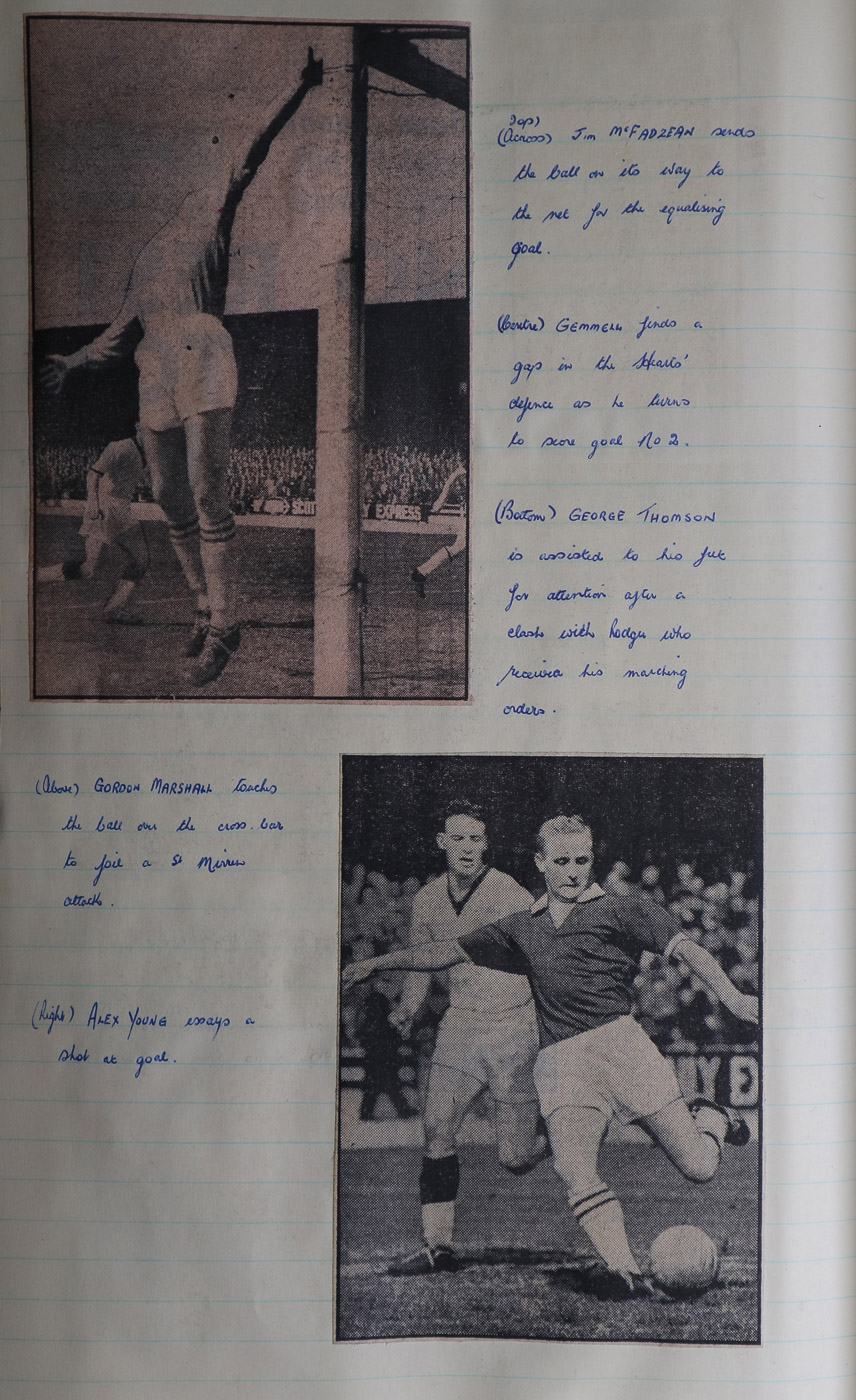 Top)
(Across) Jim McFADZEAN sends
the ball on its way to
the net for the equalising
goal.
(Centre) GEMMELL finds a
gap in the Hearts'
defence as he turns
to score goal No 2.
(Bottom) GEORGE THOMSON
is assisted to his feet
for attention after a
clash with Rodger who
received his marching
orders.
SCOT Y EXPRESS
(Above) GORDON MARSHALL touches
the ball over the cross-bar
to foil a St Mirren
attack.
(Right) ALEX YOUNG essays a
shot at goal.
Y E